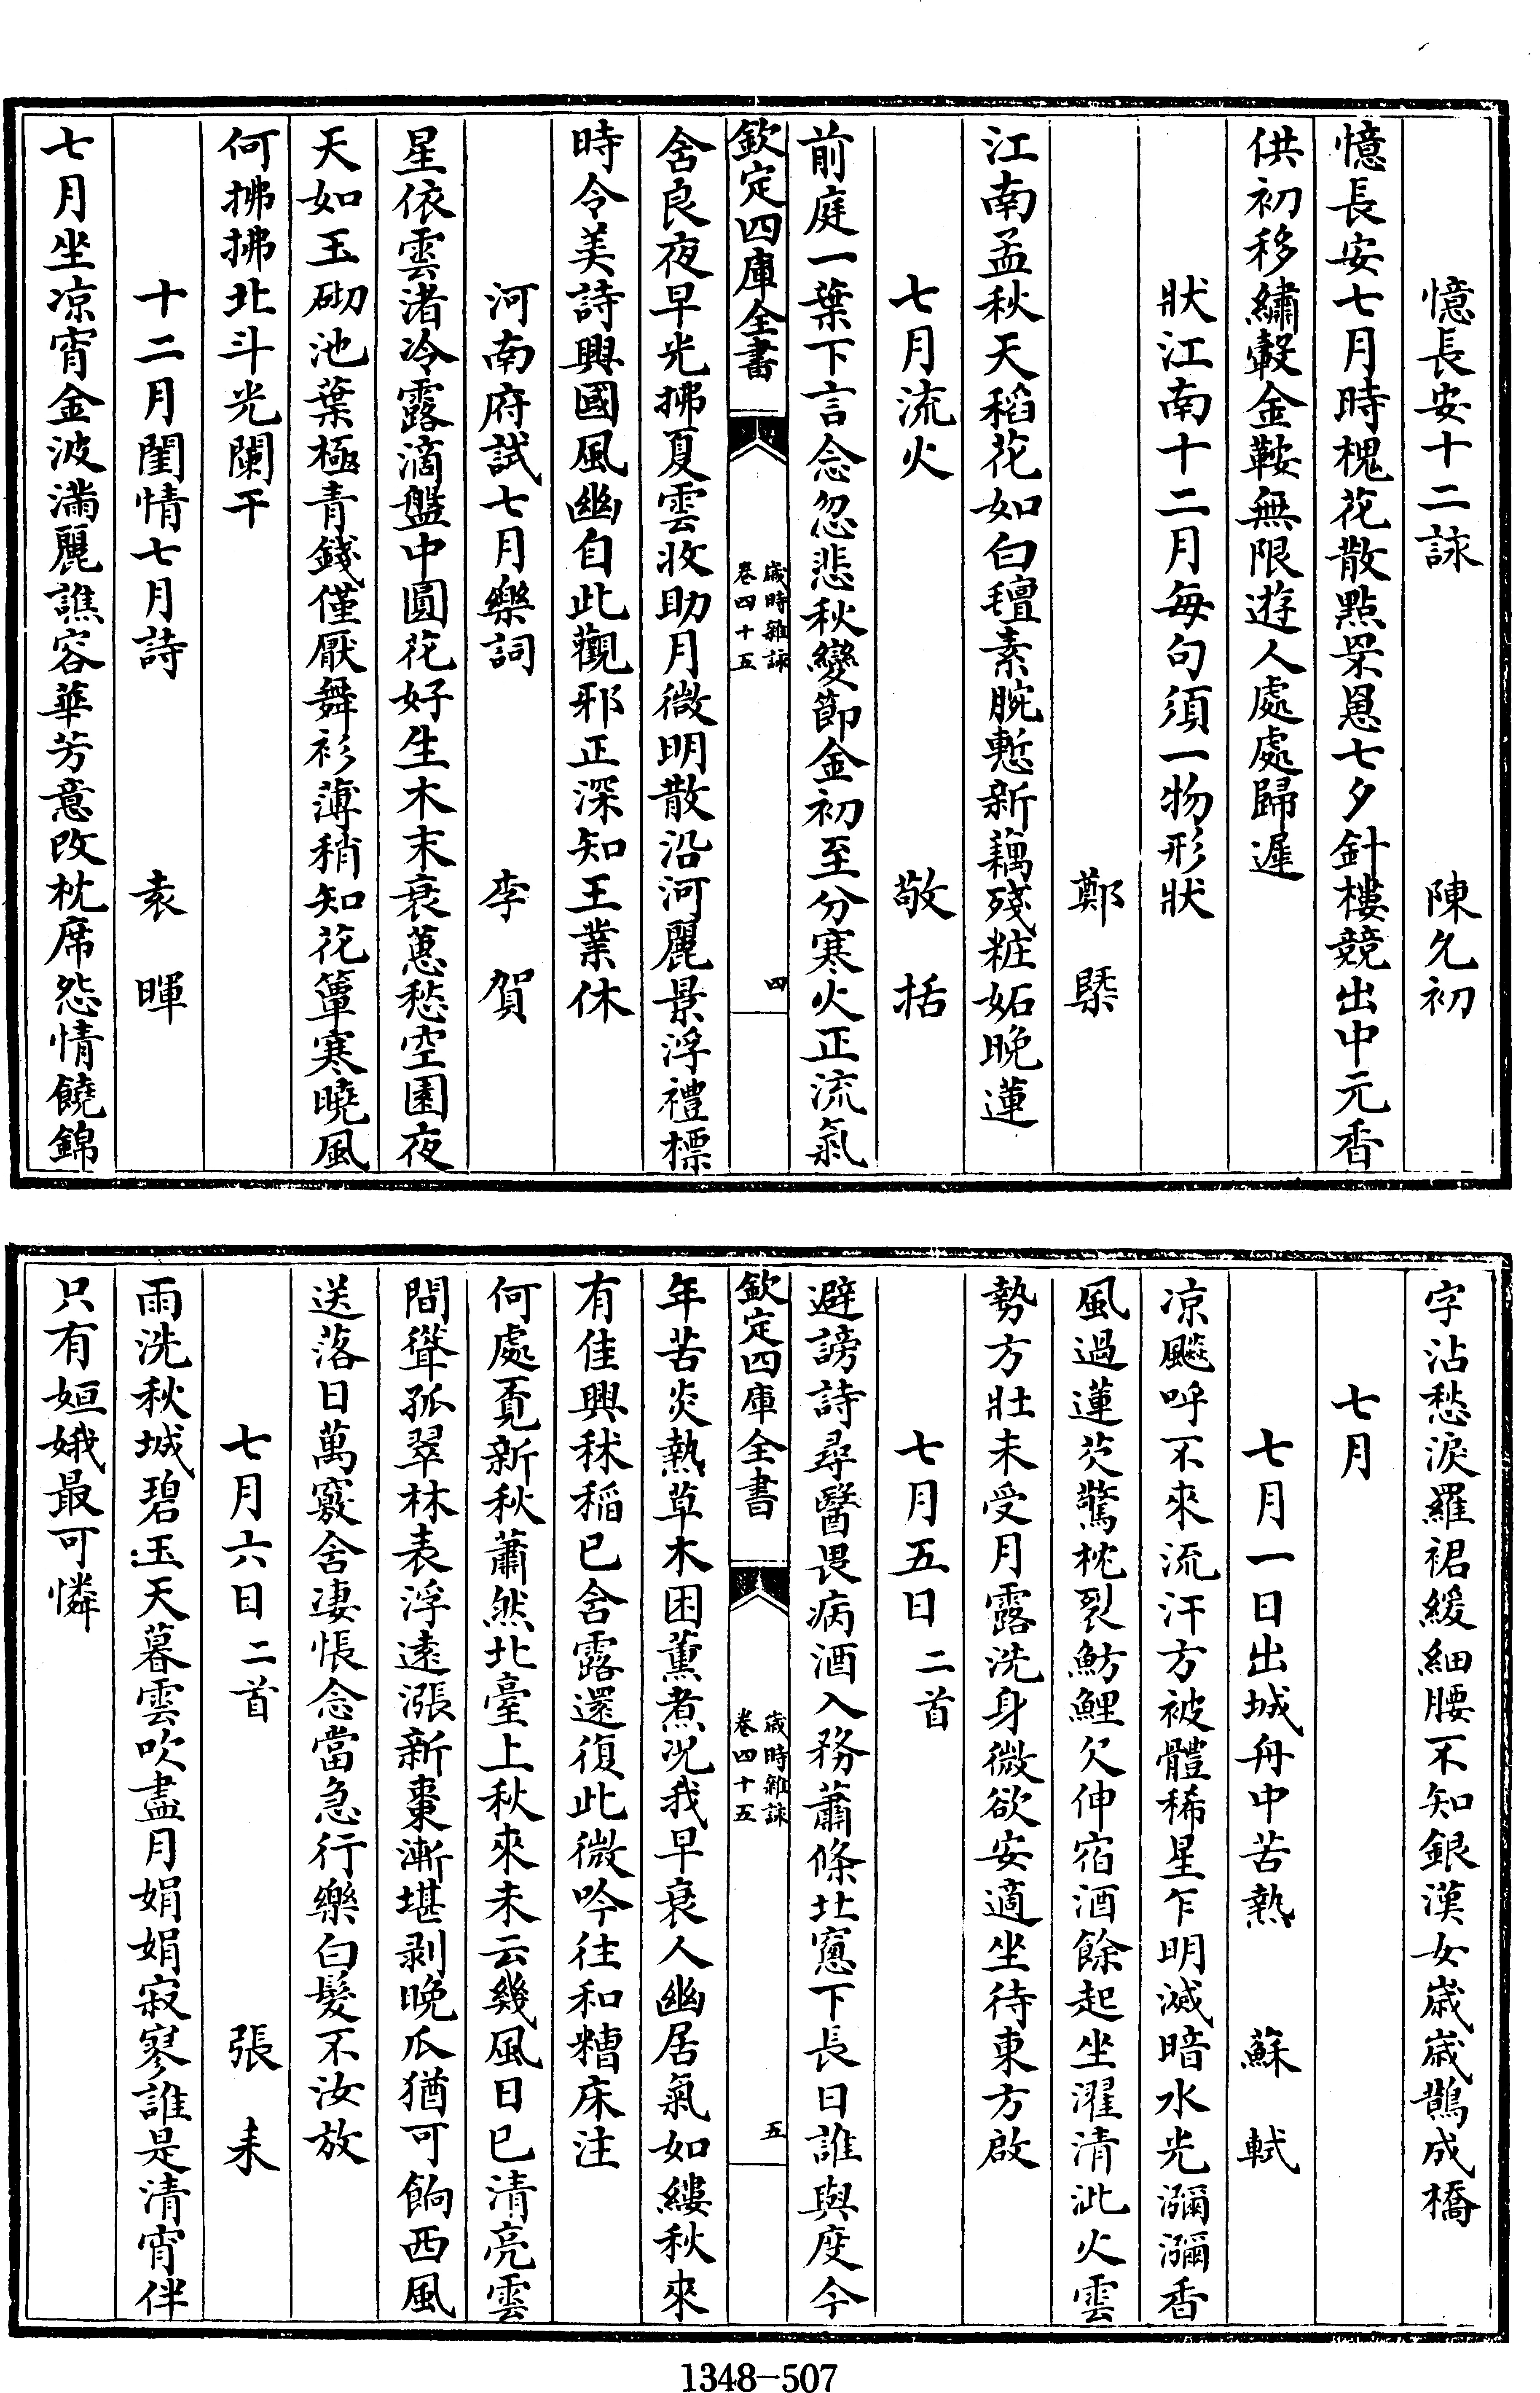 憶長安十二詠　陳允初
憶長安七月時槐花散點罘罳七夕針樓競出中元香
供初移繡轂金鞍無限遊人處處歸遲
狀江南十二月每句須一物形狀
鄭槩
江南孟秋天稻花如白氊素腕慙新藕殘粧妬晩蓮
七月流火　敬括
前庭一葉下言念忽悲秋變節金初至分寒火正流氣
欽定四庫全書　歲時雜詠卷四十五　四
含良夜早光拂夏雲收助月微明散沿河麗景浮禮標
時令美詩興國風幽自此觀邪正深知王業休
河南府試七月樂詞　李賀
星依雲渚冷露滴盤中圓花好生木末衰蕙愁空園夜
天如玉砌池葉極青錢僅厭舞衫薄稍知花簟寒曉風
何拂拂北斗光闌干
十二月閨情七月詩　袁暉
七月坐凉宵金波滿麗譙容華芳意改枕席怨情饒錦
字沾愁淚羅裙緩細腰不知銀漢女歲歲鵲成橋
七月
七月一日出城舟中苦熱　蘇軾
凉飈呼不來流汗方被體稀星乍明滅暗水光瀰瀰香
風過蓮芡驚枕裂魴鯉欠伸宿酒餘起坐濯清泚火雲
勢方壯未受月露洗身微欲安適坐待東方啟
七月五日二首
避謗詩尋醫畏病酒入務蕭條北窻下長日誰與度今
欽定四庫全書　歲時雜詠卷四十五　五
年苦炎熱草木困薰煮况我早衰人幽居氣如縷秋來
有佳興秫稻已含露還復此微吟往和糟床注
何處覔新秋蕭然北臺上秋來未云幾風日已清亮雲
間聳孤翠林表浮遠漲新棗漸堪剥晩瓜猶可餉西風
送落日萬竅含凄悵念當急行樂白髮不汝放
七月六日二首　張耒
雨洗秋城碧玉天暮雲吹盡月娟娟寂寥誰是清宵伴
只有姮娥最可憐
1348-507